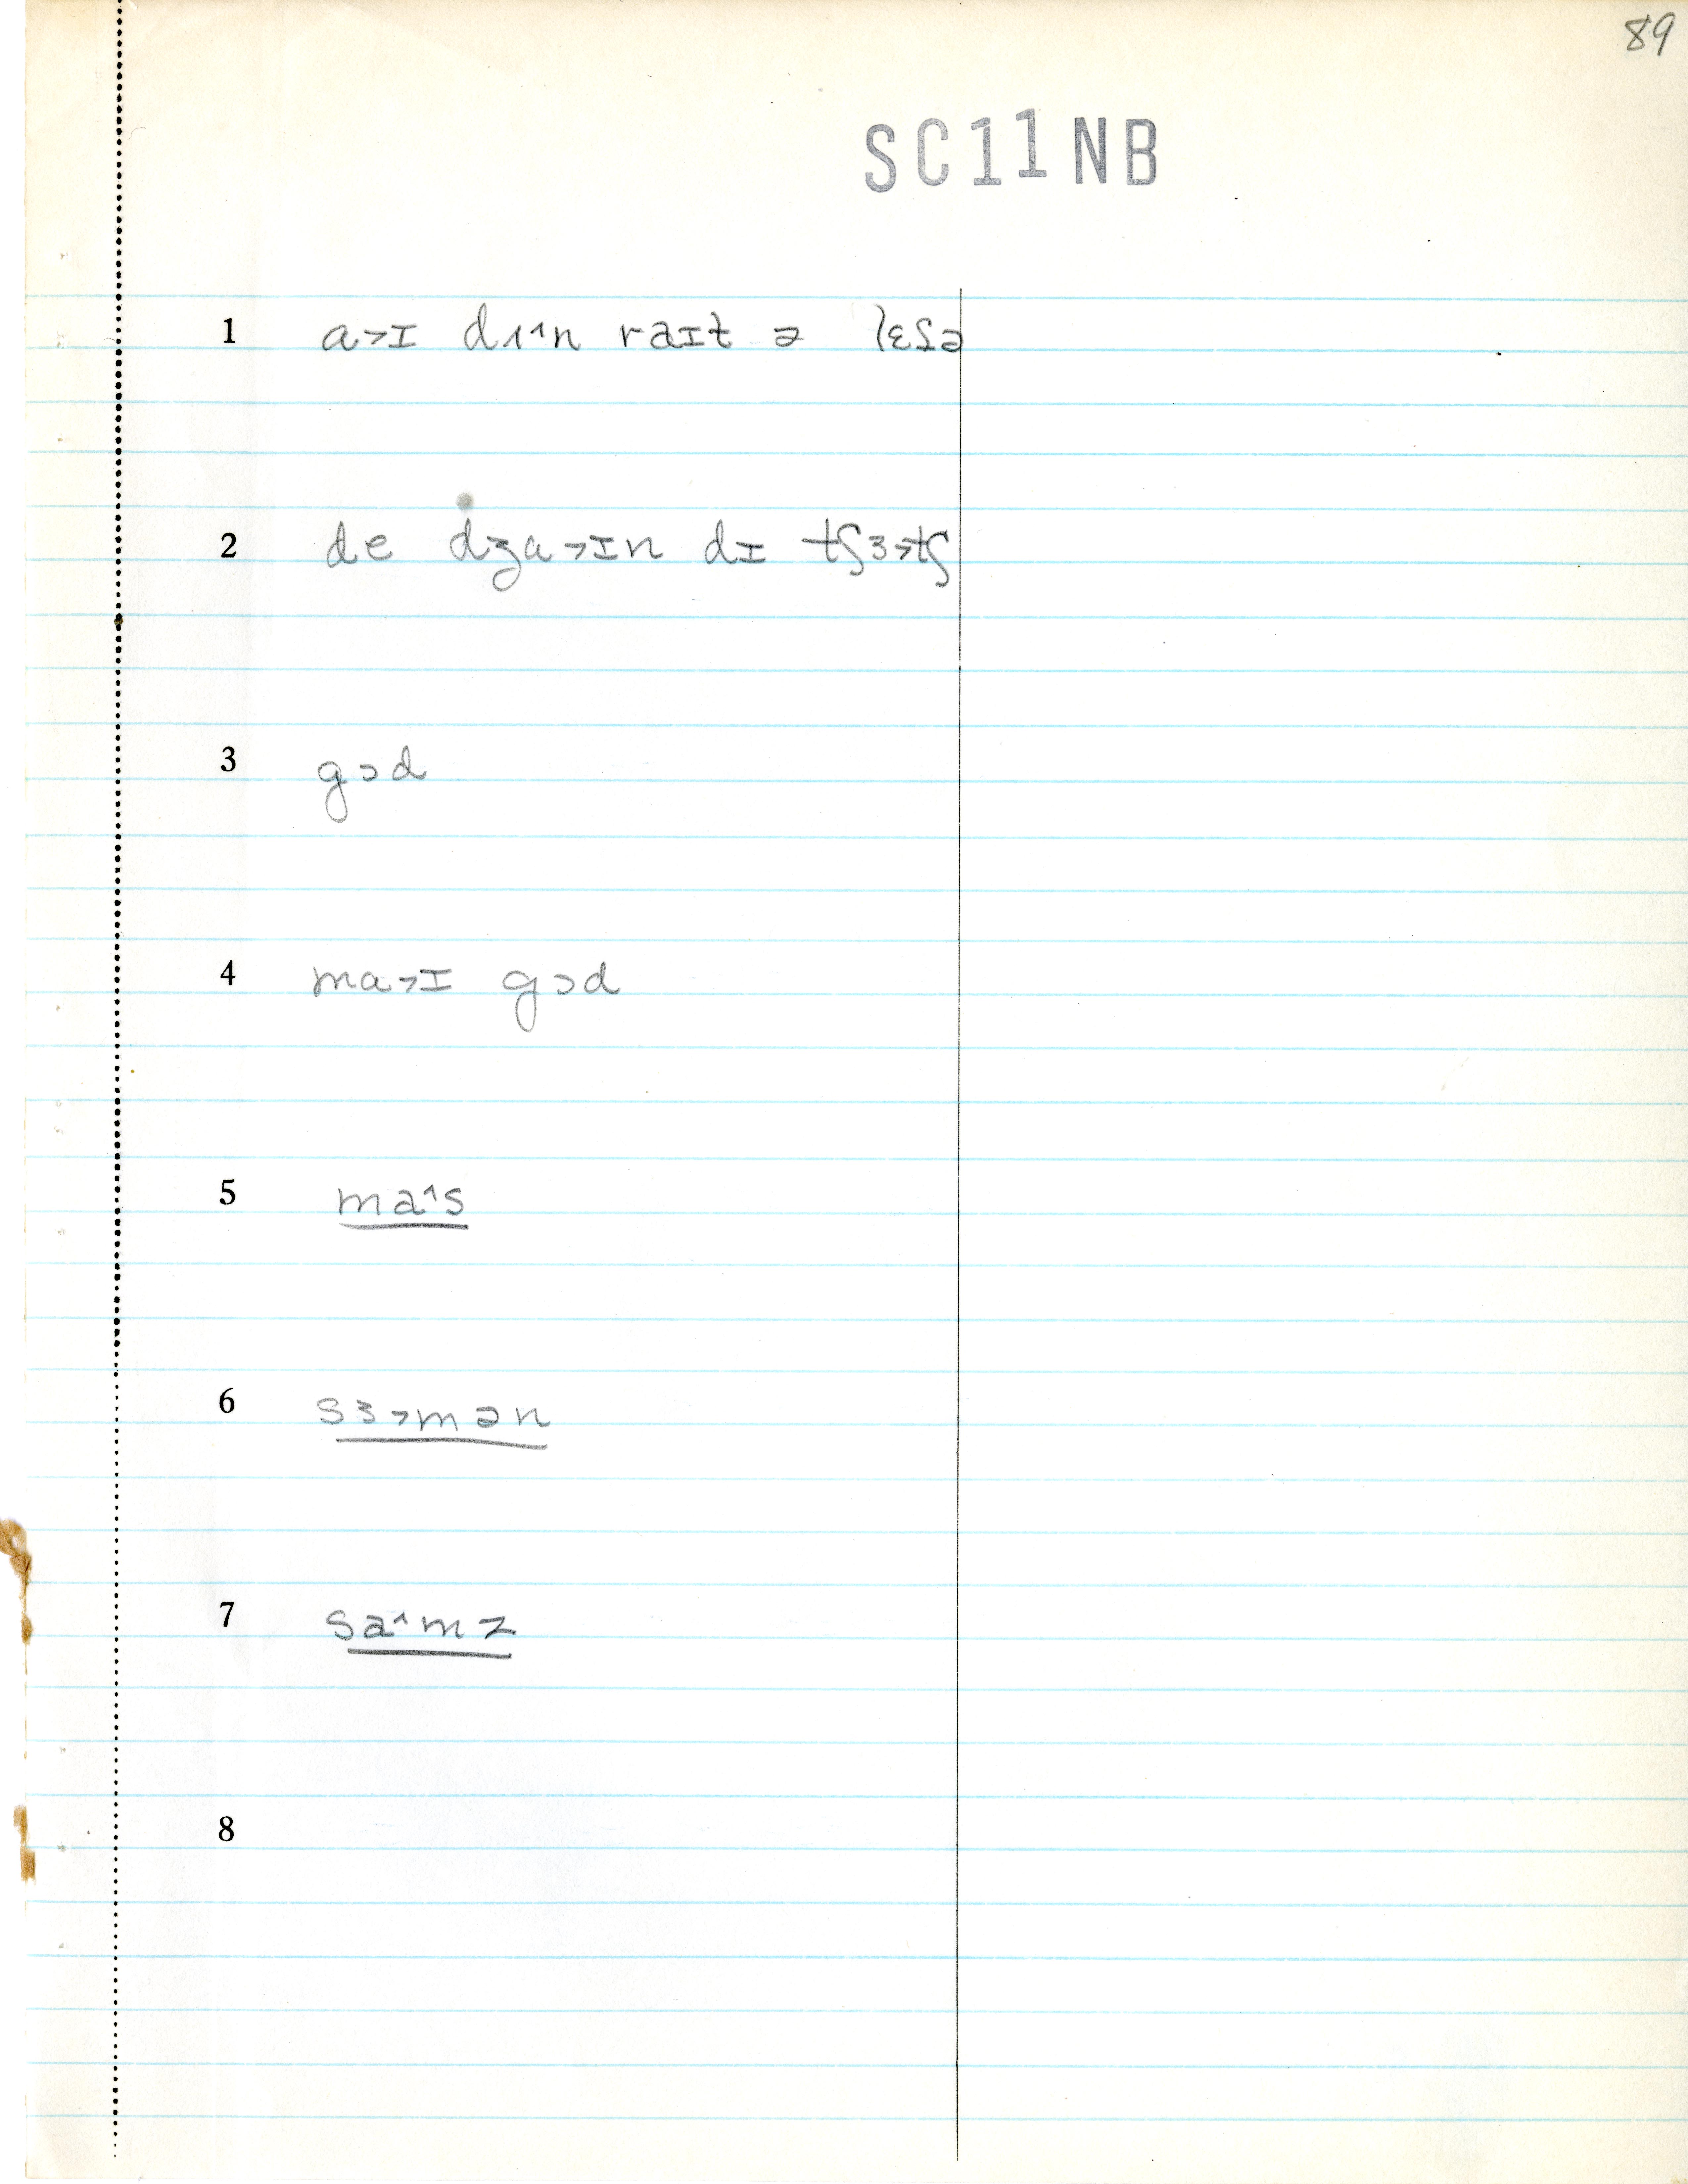 89
SC11NB
1 a˃ɪ dɪ˄n raɪt ə lɛsə
2 de dʒa˃ɪn dɪ tʃɜ˃tʃ
3 gɔd
4 ma˃ɪ gɔd
5 ma˄s
6 sɜ˃mən
7 sa˄mz
8